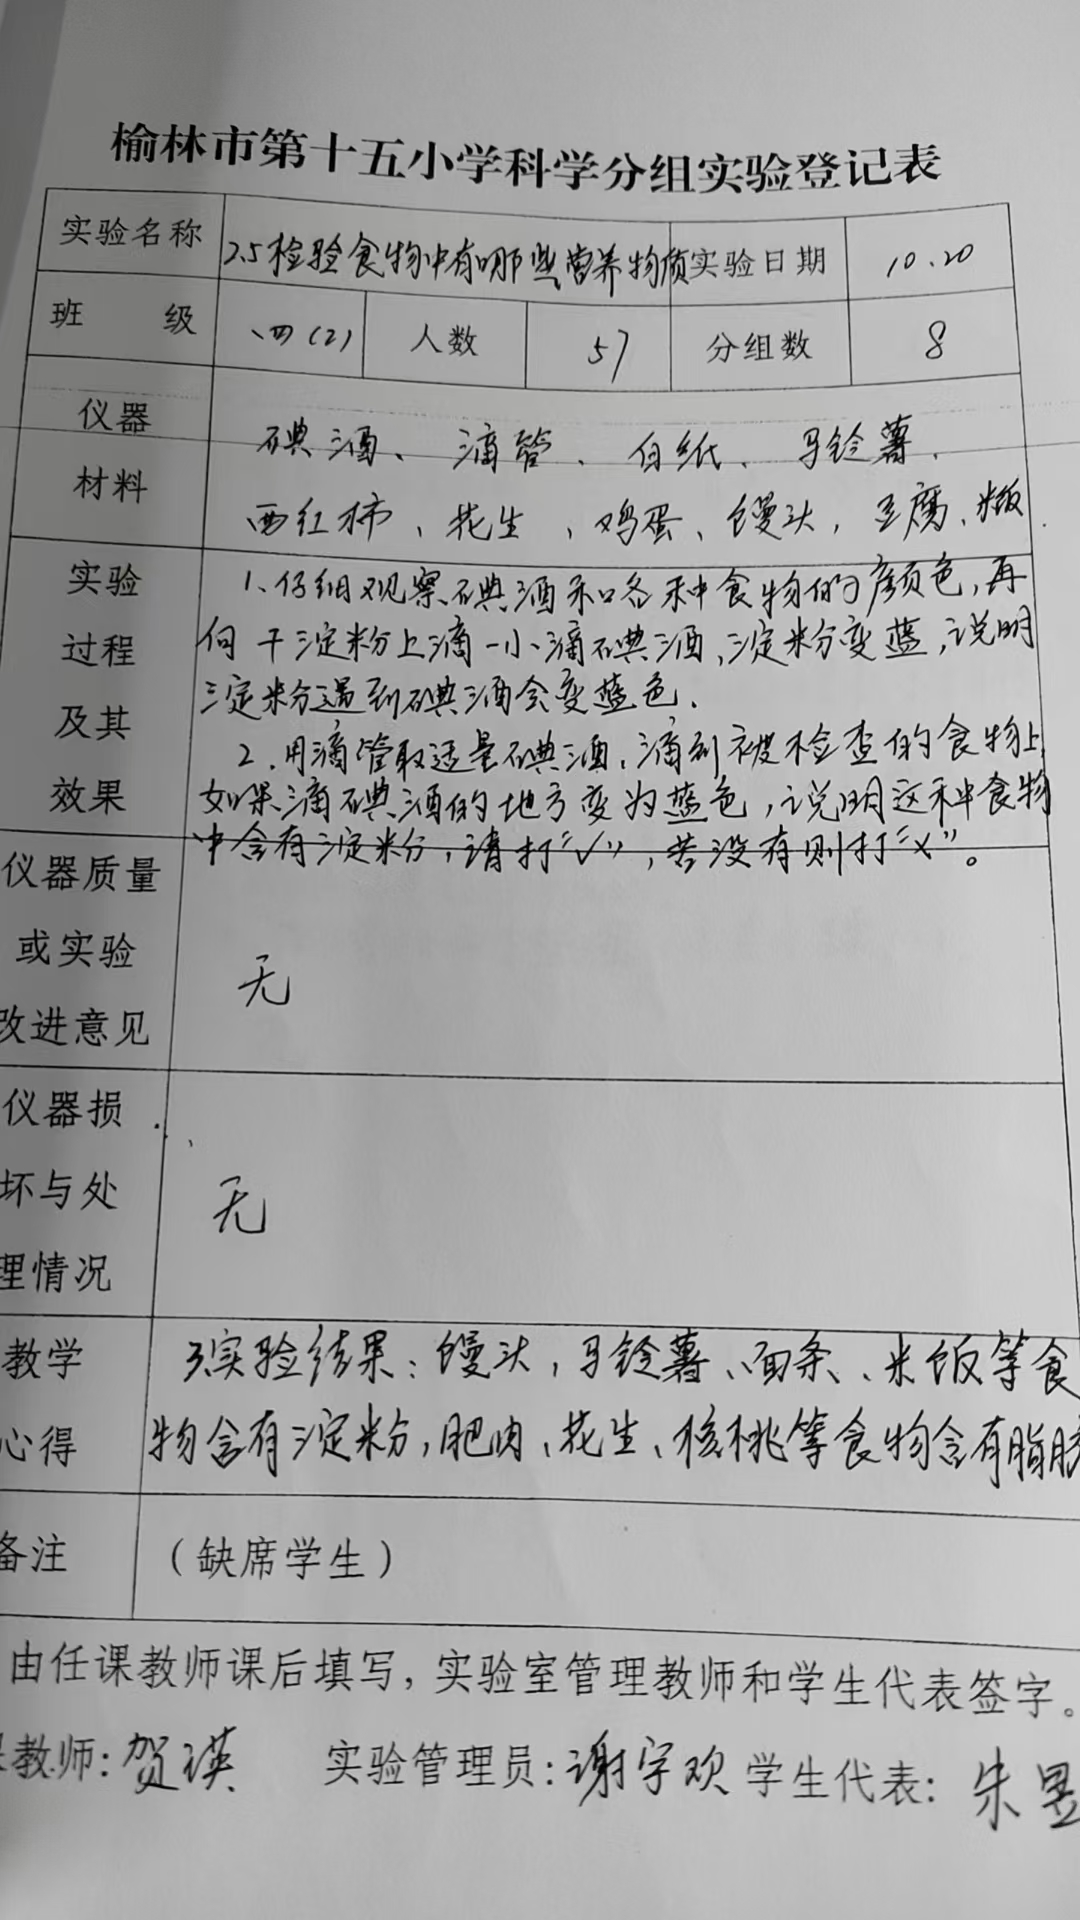 榆林市第十五小学科学分组实验登记表
实验名称 2.5检验食物中有哪些营养物质 实验日期 10.20
班 级 四(2) 人数 57 分组数 8
仪器
材料
碘酒、滴管、白纸、马铃薯、
西红柿、花生、鸡蛋、馒头,豆腐、米饭
实验
过程
及其
效果
1、仔细观察碘酒和各种食物的颜色,再
向干淀粉上滴一小滴碘酒,淀粉变蓝,说明
淀粉遇到碘酒会变蓝色.
2.用滴管取适量碘酒,滴到被检查的食物上,
如果滴碘酒的地方变为蓝色,说明这种食物
中含有淀粉,请打“√”,若没有则打“×”。
仪器质量
或实验
改进意见
无
仪器损
坏与处
理情况
无
教学
心得
3.实验结果:馒头,马铃薯、面条、米饭等食
物含有淀粉,肥肉、花生、核桃等食物含有脂肪
备注 (缺席学生)
由任课教师课后填写,实验室管理教师和学生代表签字。
课教师:贺瑛 实验管理员:谢宇欢 学生代表:朱昱